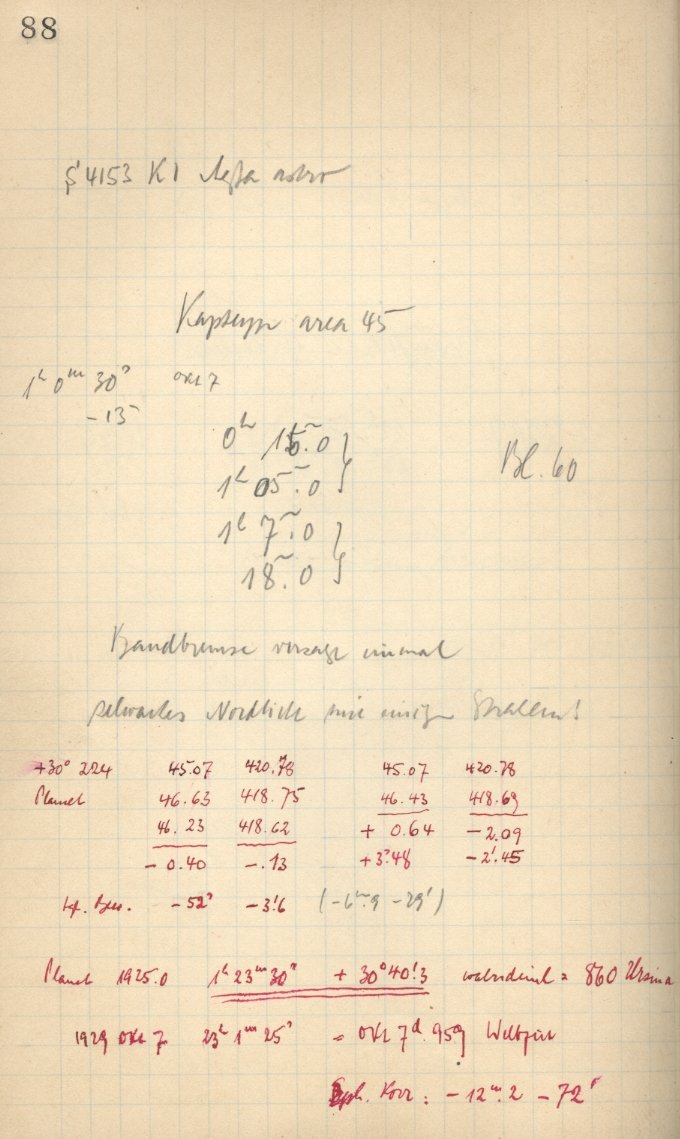 88
S 4153 K1 Agfa astro
Kapteyn area 45
1h 0m 30s Okt 7
-13
0h 15m.0 }
1h 05m.0 }
Bl. 60
1h 7m.0 }
18m.0 }
Handbremse versagt einmal
schwaches Nordlicht mit einigen Strahlen!
+30° 224 45.07 420.78 45.07 420.78
Planet 46.63 418.75 46.43 418.69
46.23 418.62 + 0.64 -2.09
- 0.40 -.13 +3s.48 -2'.45
tgl. Bew. -52s -3'.6 (-6m.9 -29')
Planet 1925.0 1h 23m 30s + 30° 40'.3 wahrscheinl = 860 Ursina
1929 Okt 7. 23h 1m 25s = Okt 7d.959 Weltzeit
Eph. Korr: -12m.2 -72'